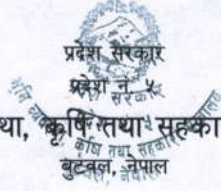 प्रदेश सरकार
प्रदेश नं. ५
था, कृषि तथा सहका
बुटवल, नेपाल